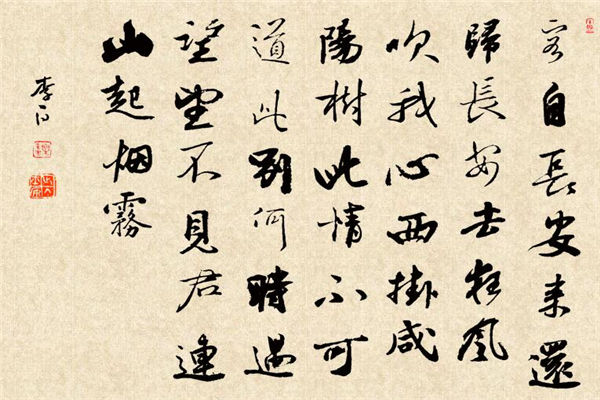 客自長安来還
歸長安去狂風
吹我心西掛咸
陽樹此情不可
道此別何時遇
望望不見君連
山起烟霧
李白